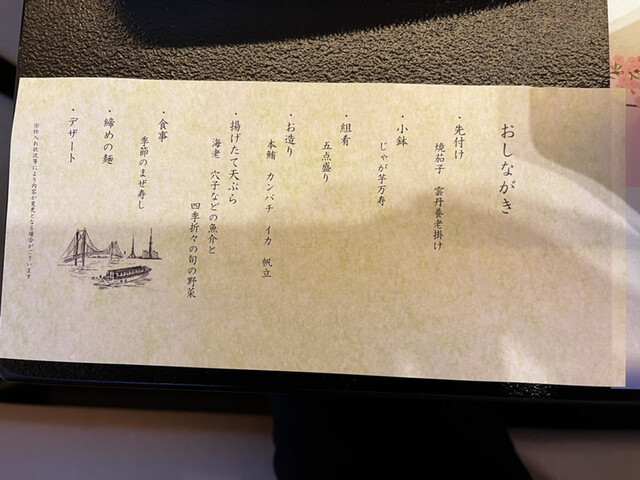 おしながき
・先付け
焼茄子 雲丹養老掛け
・小鉢
じゃが芋万寿
・組肴
五点盛り
・お造り
本鮪 カンパチ イカ 帆立
・揚げたて天ぷら
海老 穴子などの魚介と
四季折々の旬の野菜
・食事
季節のまぜ寿し
・締めの麺
・デザート
※仕入れ状況等により内容が変更となる場合がございます